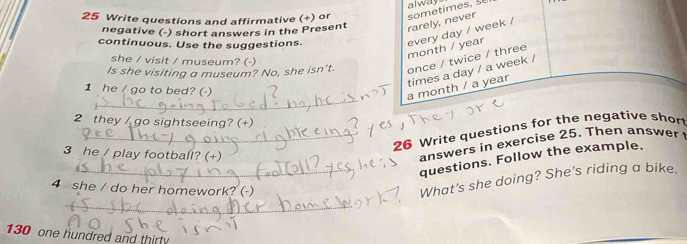 25 Write questions and affirmative (+) or
negative (-) short answers in the Present
continuous. Use the suggestions.
she / visit / museum? (-)
Is she visiting a museum? No, she isn't.
1 he / go to bed? (-)
is he going to bed? no, he isnot
2 they / go sightseeing? (+)
are they going sightseeing? yes, they are
3 he / play football? (+)
is he playing football? yes, he is
4 she / do her homework? (-)
is she doing her homework?
no she isn't
130 one hundred and thirty
sometimes,
rarely, never
every day / week /
month / year
once / twice / three
times a day / a week /
a month / a year
26 Write questions for the negative short
answers in exercise 25. Then answer
questions. Follow the example.
What's she doing? She's riding a bike.